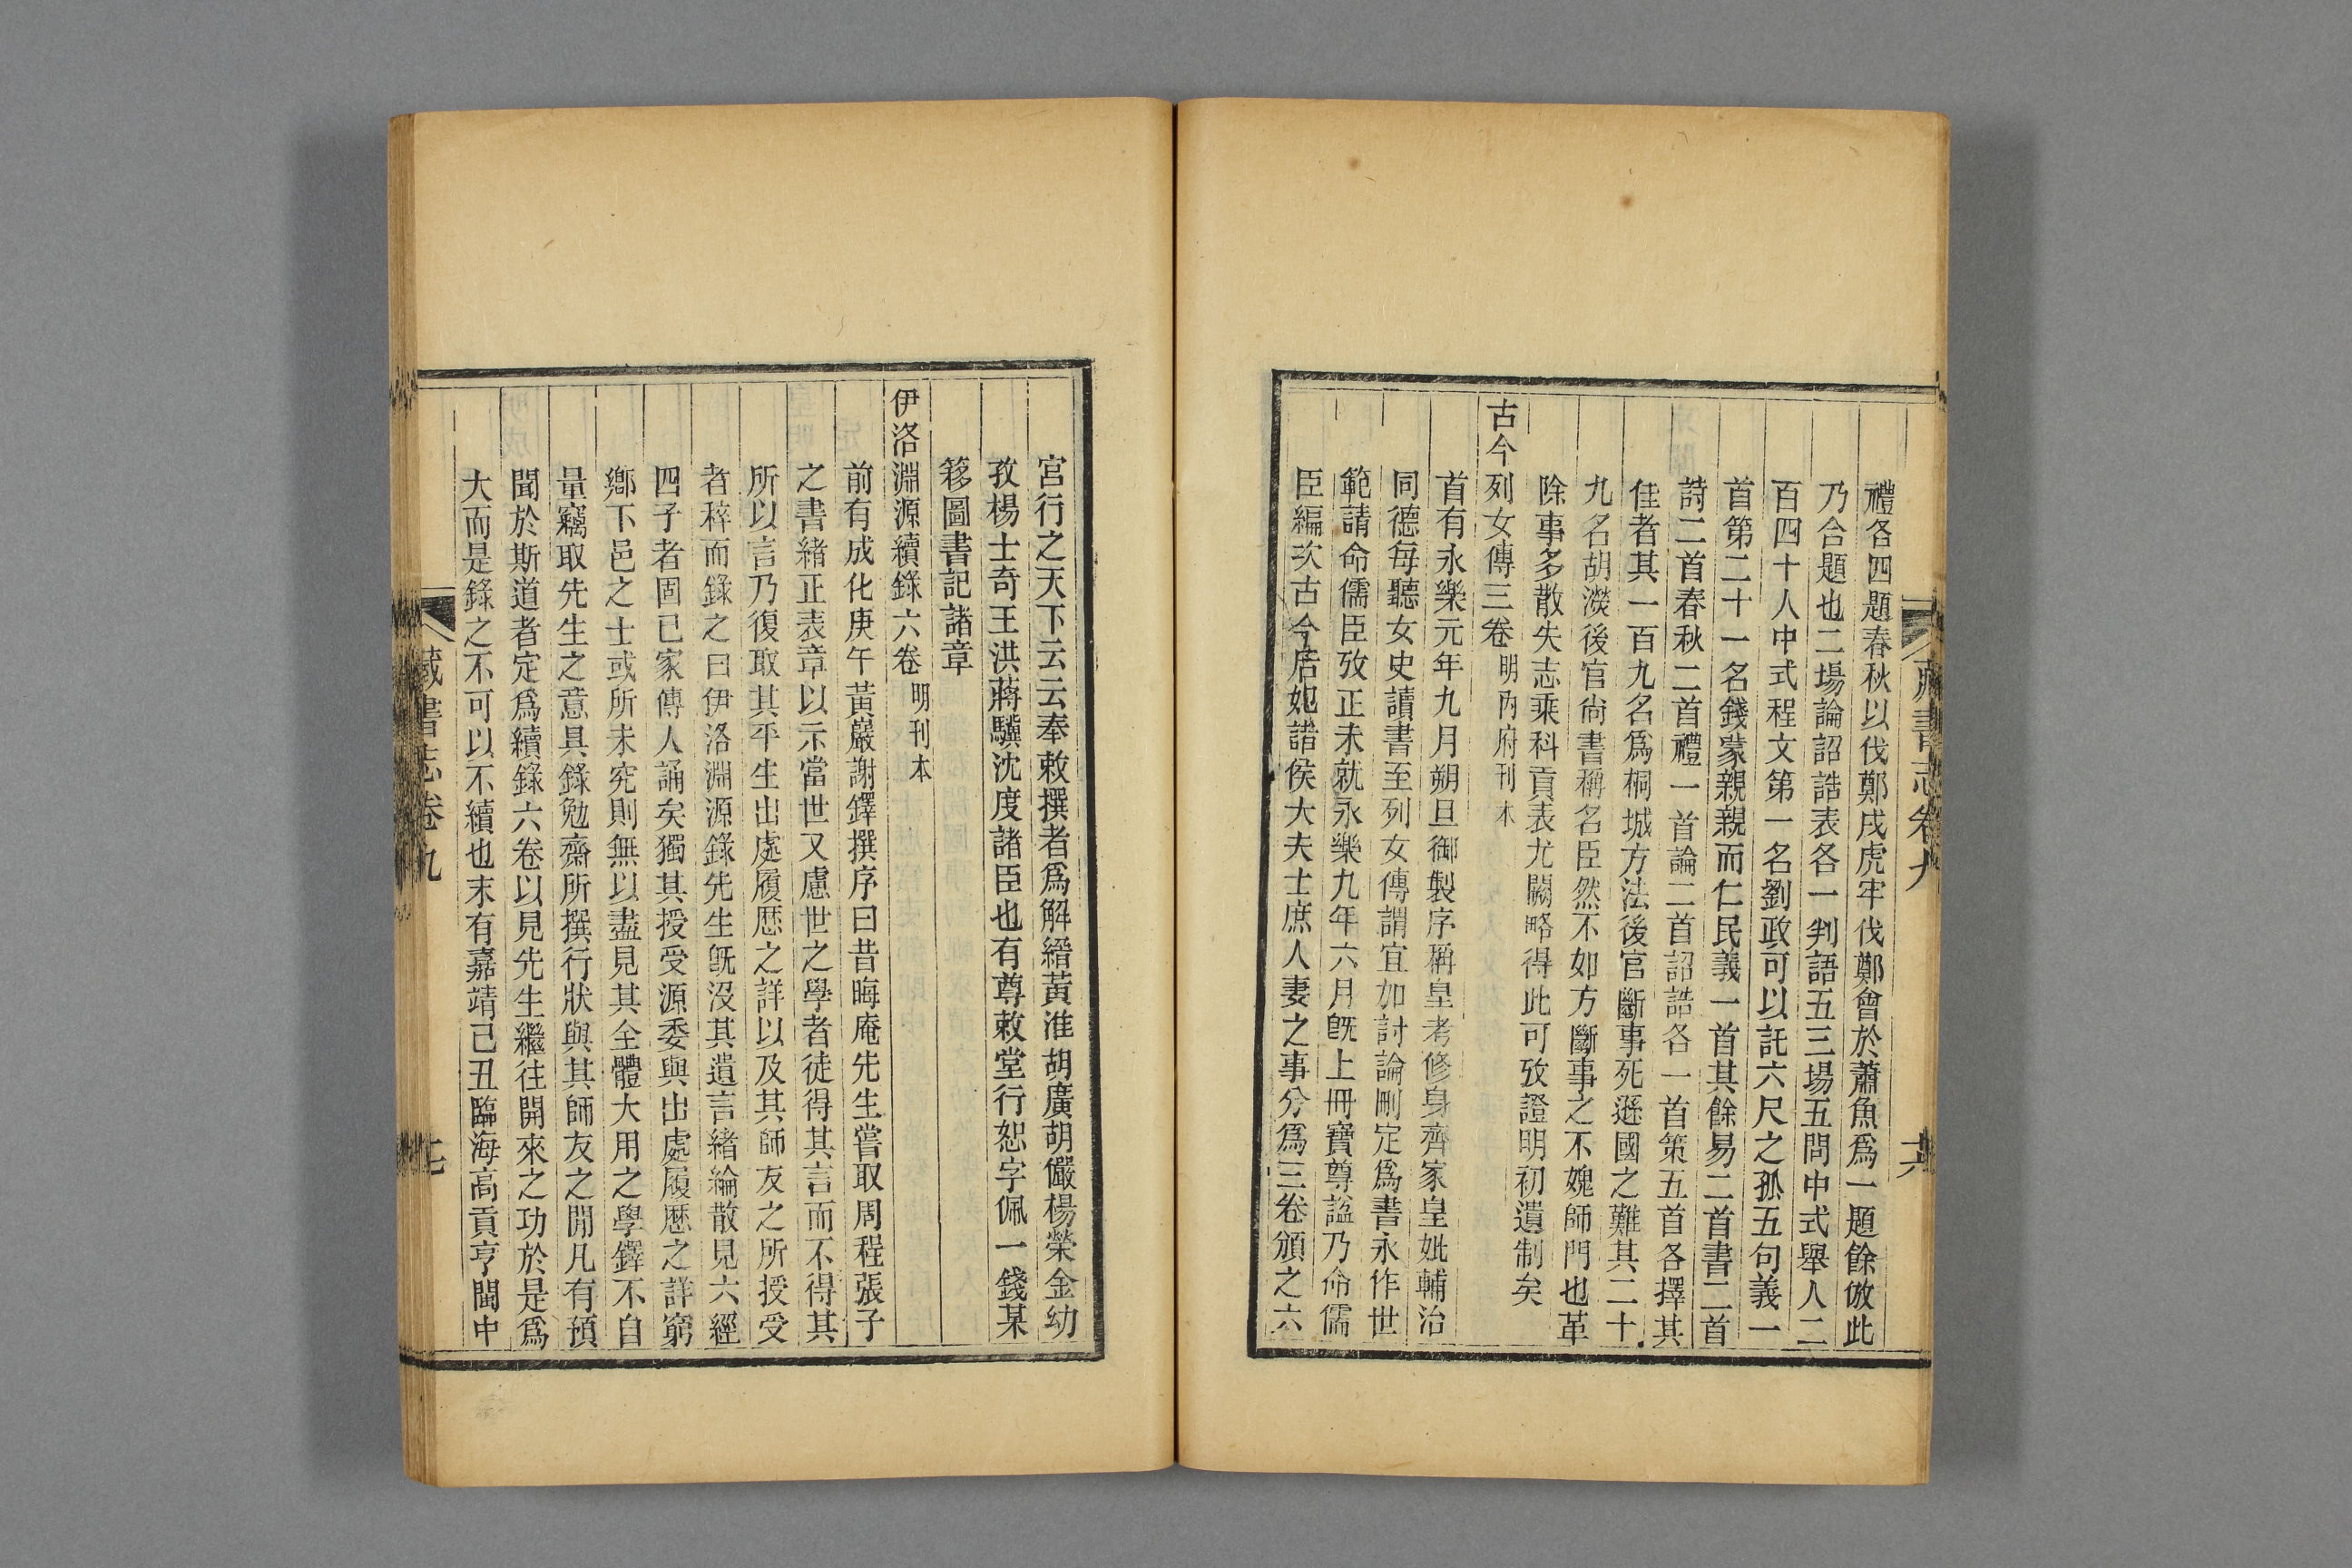 藏書志卷九
十六
禮各四題春秋以伐鄭戌虎牢伐鄭會於蕭魚爲一題餘倣此
乃合題也二場論詔誥表各一判語五三場五問中式舉人二
百四十人中式程文第一名劉政可以託六尺之孤五句義一
首第二十一名錢蒙親親而仁民義一首其餘易二首書二首
詩二首春秋二首禮一首論二首詔誥各一首策五首各擇其
佳者其一百九名爲桐城方法後官斷事死遜國之難其二十
九名胡濙後官尙書稱名臣然不如方斷事之不媿師門也革
除事多散失志乘科貢表尤闕略得此可攷證明初遺制矣
古今列女傳三卷 明內府刊本
首有永樂元年九月朔旦御製序稱皇考修身齊家皇妣輔治
同德每聽女史讀書至列女傳謂宜加討論刪定爲書永作世
範請命儒臣攷正未就永樂九年六月旣上冊寶尊謚乃命儒
臣編次古今后妃諸侯大夫士庶人妻之事分爲三卷頒之六
宮行之天下云云奉敕撰者爲解縉黃淮胡廣胡儼楊榮金幼
孜楊士奇王洪蔣驥沈度諸臣也有尊敕堂行恕字佩一錢某
簃圖書記諸章
伊洛淵源續錄六卷 明刊本
前有成化庚午黃巖謝鐸撰序曰昔晦庵先生嘗取周程張子
之書緖正表章以示當世又慮世之學者徒得其言而不得其
所以言乃復取其平生出處履歷之詳以及其師友之所授受
者稡而錄之曰伊洛淵源錄先生旣沒其遺言緖論散見六經
四子者固已家傳人誦矣獨其授受源委與出處履歷之詳窮
鄕下邑之士或所未究則無以盡見其全體大用之學鐸不自
量竊取先生之意具錄勉齋所撰行狀與其師友之閒凡有預
聞於斯道者定爲續錄六卷以見先生繼往開來之功於是爲
大而是錄之不可以不續也末有嘉靖己丑臨海高賁亨閩中
藏書志卷九
十七